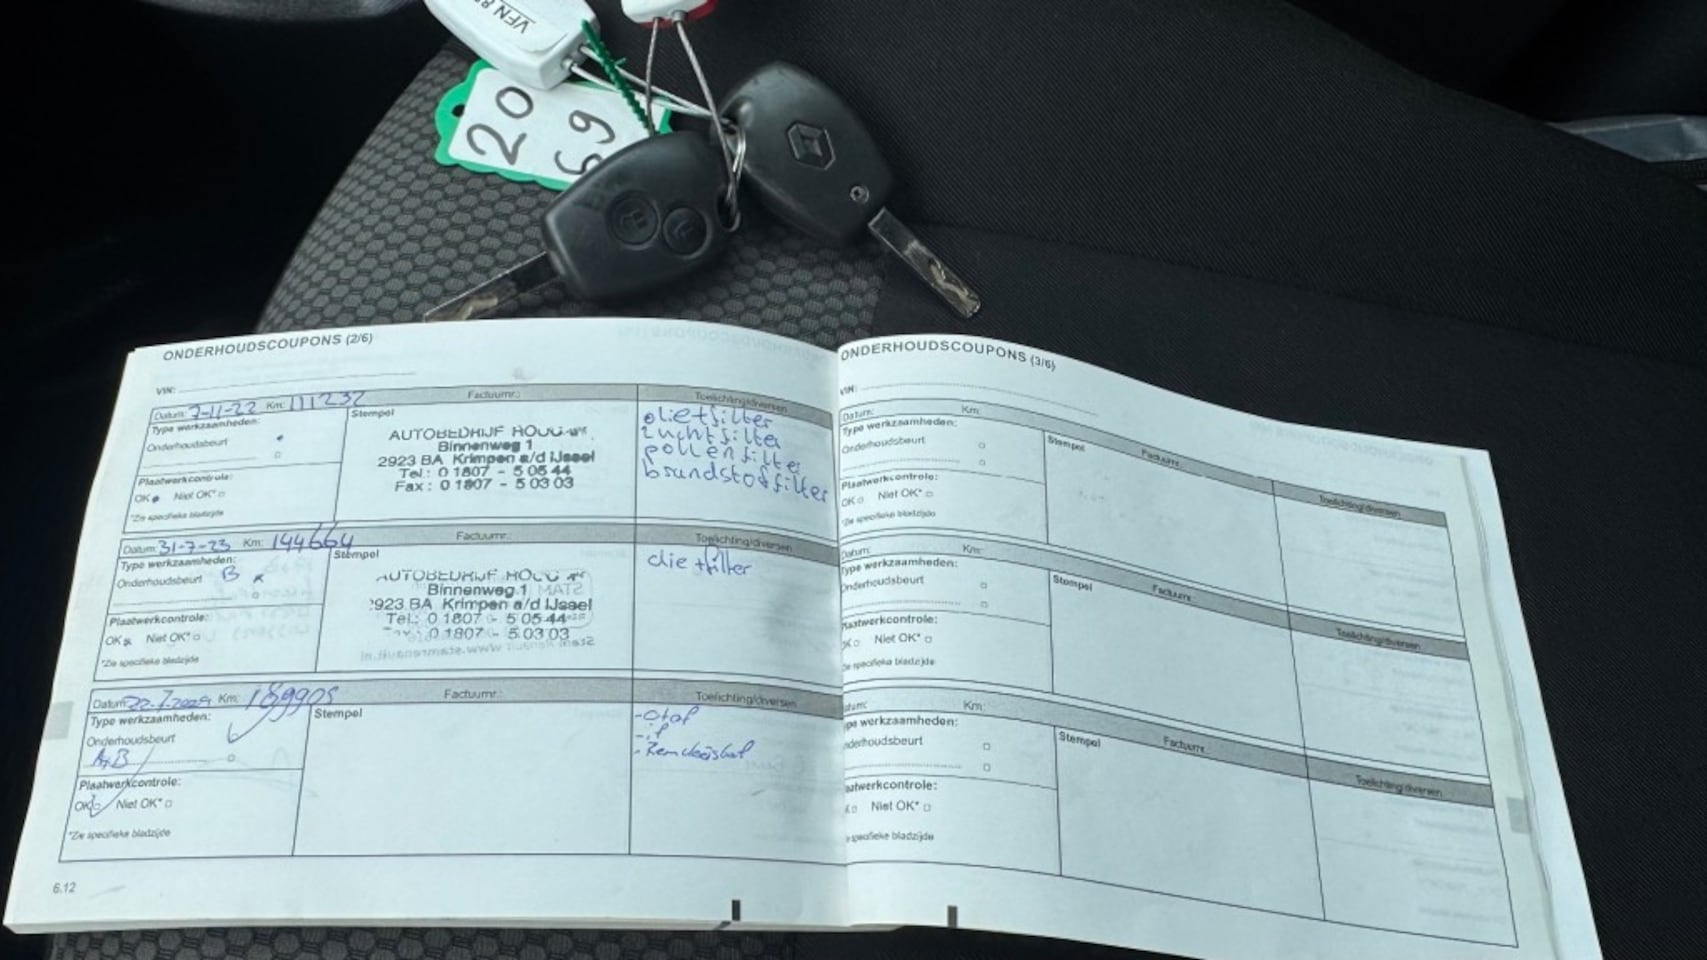 VFN 8
20
69
ONDERHOUDSCOUPONS (2/6)
VIN:
Datum: 7-11-22 Km: 111232 Factuurnr.: Toelichting/diversen
Type werkzaamheden:
Onderhoudsbeurt
Plaatwerkcontrole:
OK Niet OK*
*Zie specifieke bladzijde
Stempel
AUTOBEDRIJF HOOG
Binnenweg 1
2923 BA Krimpen a/d IJssel
Tel.: 0 1807 - 5 05 44
Fax: 0 1807 - 5 03 03
olietfilter
luchtfilter
pollenfilter
brandstoffilter
Datum: 31-7-23 Km: 144664 Factuurnr.: Toelichting/diversen
Type werkzaamheden:
Onderhoudsbeurt B
Plaatwerkcontrole:
OK Niet OK*
*Zie specifieke bladzijde
Stempel
AUTOBEDRIJF HOOG
Binnenweg 1
2923 BA Krimpen a/d IJssel
Tel.: 0 1807 - 5 05 44
0 1807 - 5 03 03
olie + filter
Datum: 22-7-2024 Km: 189905 Factuurnr.: Toelichting/diversen
Type werkzaamheden:
Onderhoudsbeurt
A+B
Plaatwerkcontrole:
OK Niet OK*
*Zie specifieke bladzijde
Stempel
6.12
ONDERHOUDSCOUPONS (3/6)
VIN:
Datum: Km:
Type werkzaamheden:
Onderhoudsbeurt
Plaatwerkcontrole:
OK Niet OK*
*Zie specifieke bladzijde
Stempel Factuurnr. Toelichting/diversen
Datum: Km:
Type werkzaamheden:
Onderhoudsbeurt
Plaatwerkcontrole:
Niet OK*
specifieke bladzijde
Stempel Factuurnr. Toelichting/diversen
Datum: Km:
Type werkzaamheden:
Onderhoudsbeurt
Plaatwerkcontrole:
Niet OK*
specifieke bladzijde
Stempel Factuurnr. Toelichting/diversen